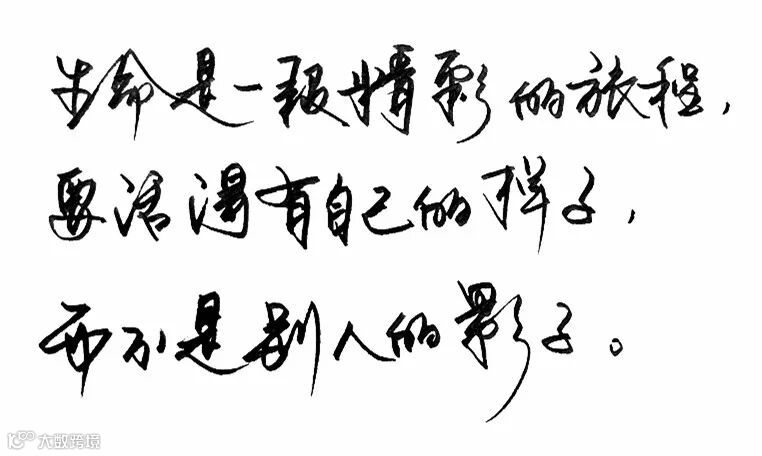 生命是一段精彩的旅程，
要活得有自己的样子，
而不是别人的影子。
大数跨境